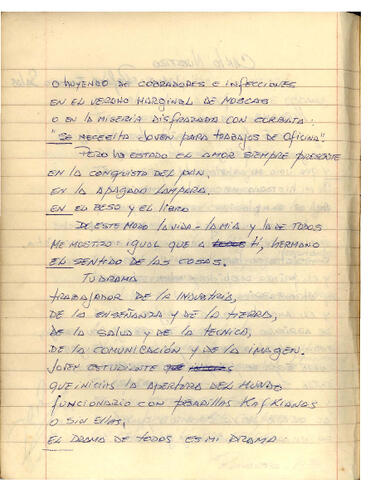 O HUYENDO DE COBRADORES E INFECCIONES
EN EL VERANO MARGINAL DE MOSCAS
O EN LA MISERIA DISFRAZADA CON CORBATA:
"SE NECESITA JOVEN PARA TRABAJOS DE OFICINA".
PERO HA ESTADO EL AMOR SIEMPRE PRESENTE
EN LA CONQUISTA DEL PAN,
EN LA APAGADO LAMPARA
EN EL BESO Y EL LIBRO
DE ESTE MODO LA VIDA - LA MIA Y LA DE TODOS
ME MOSTRO IGUAL QUE A TI, HERMANO
EL SENTIDO DE LAS COSAS.
TU DRAMA
TRABAJADOR DE LA INDUSTRIA,
DE LA ENSEÑANZA Y DE LA TIERRA,
DE LA SALUD Y DE LA TECNICA,
DE LA COMUNICACIÓN Y DE LA IMAGEN.
JOVEN ESTUDIANTE
QUE INICIAS LA APERTURA DEL MUNDO
FUNCIONARIO CON PESADILLAS KAFKIANAS
O SIN ELLAS,
EL DRAMA DE TODOS ES MI DRAMA